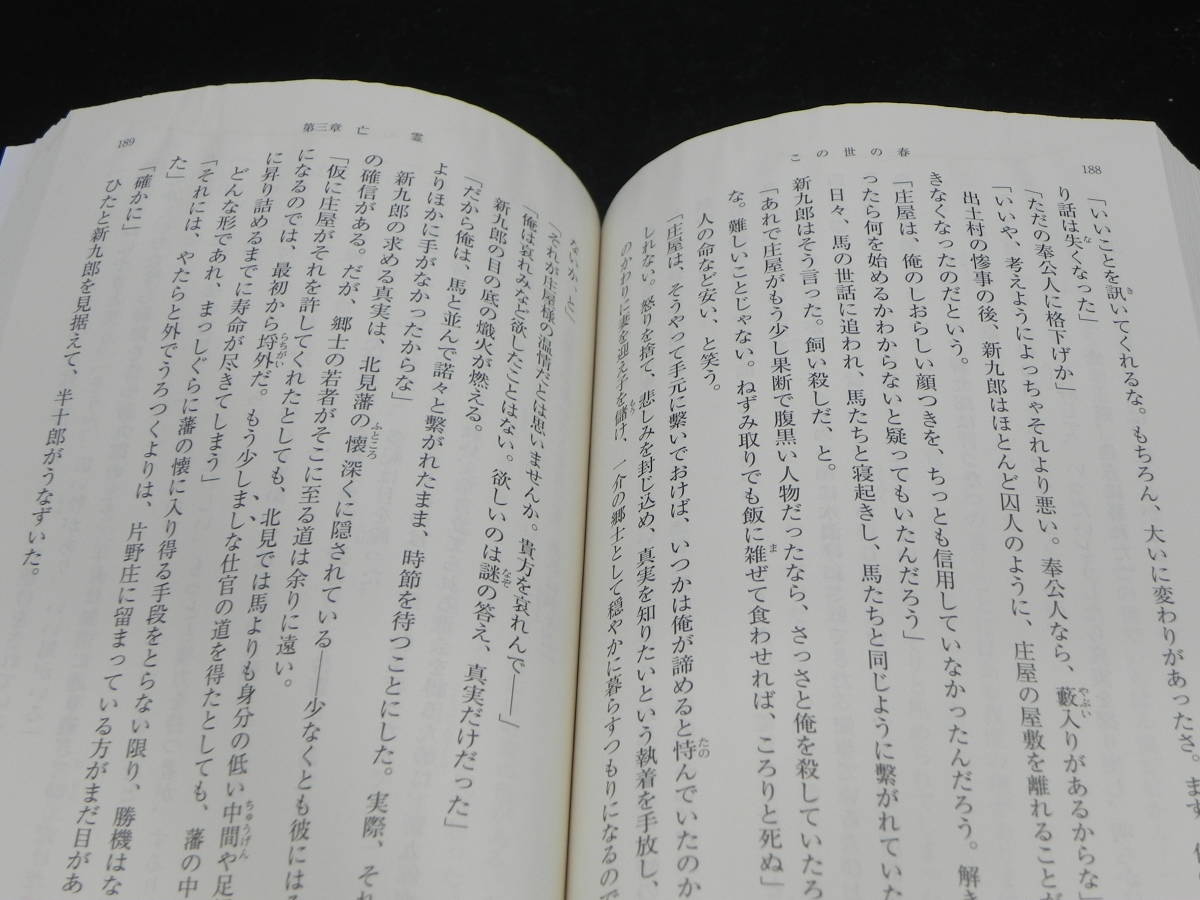 188
この世の春
「いいことを訊いてくれるな。もちろん、大いに変わりがあったさ。まず、
り話は失くなった」
「ただの奉公人に格下げか」
「いいや、考えようによっちゃそれより悪い。奉公人なら、藪入りがあるからな」
出土村の惨事の後、新九郎はほとんど囚人のように、庄屋の屋敷を離れることが
きなくなったのだという。
「庄屋は、俺のしおらしい顔つきを、ちっとも信用していなかったんだろう。解き
ったら何を始めるかわからないと疑ってもいたんだろう」
日々、馬の世話に追われ、馬たちと寝起きし、馬たちと同じように繋がれていた
新九郎はそう言った。飼い殺しだ、と。
「あれで庄屋がもう少し果断で腹黒い人物だったなら、さっさと俺を殺していたろ
な。難しいことじゃない。ねずみ取りでも飯に雑ぜて食わせれば、ころりと死ぬ」
人の命など安い、と笑う。
「庄屋は、そうやって手元に繋いでおけば、いつかは俺が諦めると恃んでいたのか
しれない。怒りを捨て、悲しみを封じ込め、真実を知りたいという執着を手放し、
のかわりに妻を迎え子を儲け、一介の郷士として穏やかに暮らすつもりになるので
189
第三章 亡霊
ないか、と」
「それが庄屋様の温情だとは思いませんか。貴方を哀れんで――」
「俺は哀れみなど欲したことはない。欲しいのは謎の答え、真実だけだった」
新九郎の目の底の熾火が燃える。
「だから俺は、馬と並んで諾々と繋がれたまま、時節を待つことにした。実際、それ
よりほかに手がなかったからな」
新九郎の求める真実は、北見藩の懐深くに隠されている――少なくとも彼には
の確信がある。だが、郷士の若者がそこに至る道は余りに遠い。
「仮に庄屋がそれを許してくれたとしても、北見では馬よりも身分の低い中間や足
になるのでは、最初から埒外だ。もう少しましな仕官の道を得たとしても、藩の中
に昇り詰めるまでに寿命が尽きてしまう」
どんな形であれ、まっしぐらに藩の懐に入り得る手段をとらない限り、勝機はな
「それには、やたらと外でうろつくよりは、片野庄に留まっている方がまだ目があ
た」
「確かに」
ひたと新九郎を見据えて、半十郎がうなずいた。